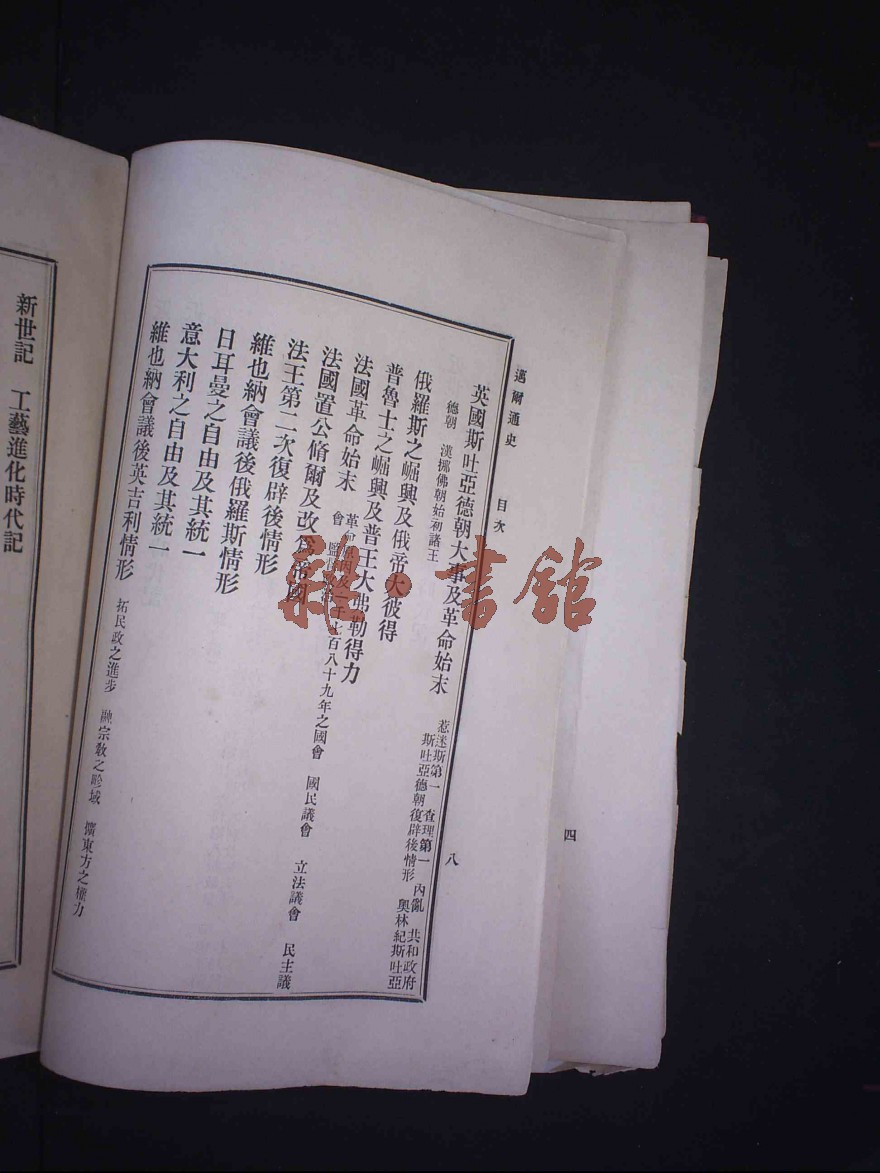 邁爾通史 目次 八
英國斯吐亞德朝大事及革命始末 惹迷斯第一 查理第一 內亂 共和政府
斯吐亞德朝復辟後情形 奧林紀斯吐亞
德朝 漢挪佛朝始初諸王
俄羅斯之崛興及俄帝大彼得
普魯士之崛興及普王大弗勒得力
法國革命始末 革命原因及一千七百八十九年之國會 國民議會 立法議會 民主議
會
法國置公脩爾及改為帝國
法王第二次復辟後情形
維也納會議後俄羅斯情形
日耳曼之自由及其統一
意大利之自由及其統一
維也納會議後英吉利情形 拓民政之進步 融宗教之畛域 擴東方之權力
新世記 工藝進化時代記
四
雜·書館